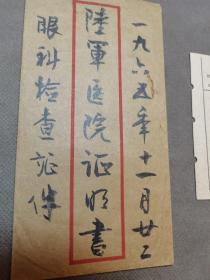 一九六五年十一月廿二
陸軍医院证明書
眼科検查证件